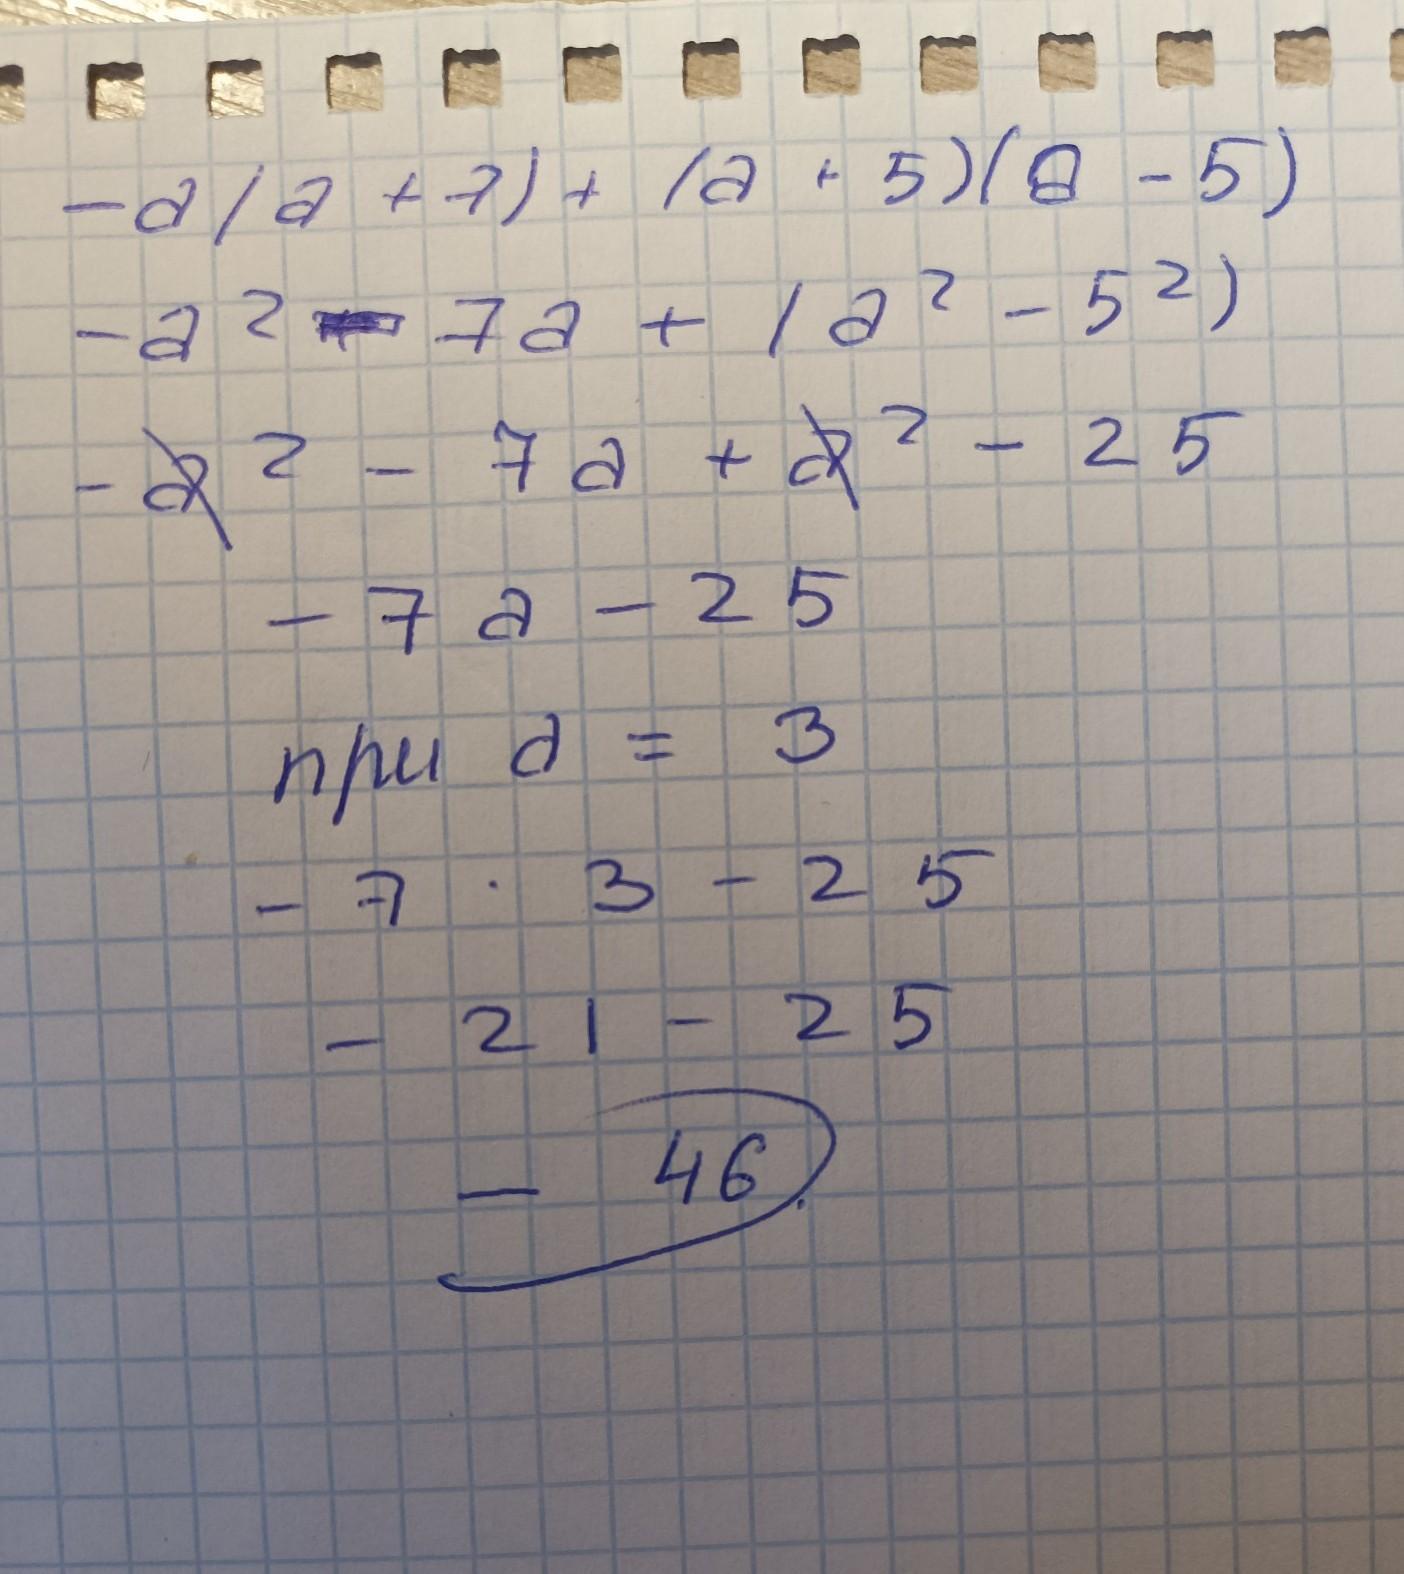 -a(a+7)+(a+5)(a-5)
-a² - 7a + (a² - 5²)
-a² - 7a + a² - 25
-7a - 25
при a = 3
-7 · 3 - 25
-21 - 25
-46